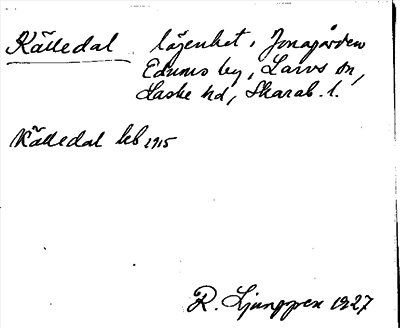 Källedal lägenhet, Jonagården
Edums by, Larvs sn,
Laske hd, Skarab. l.
Källedal kb 1915
R. Ljunggren 1927